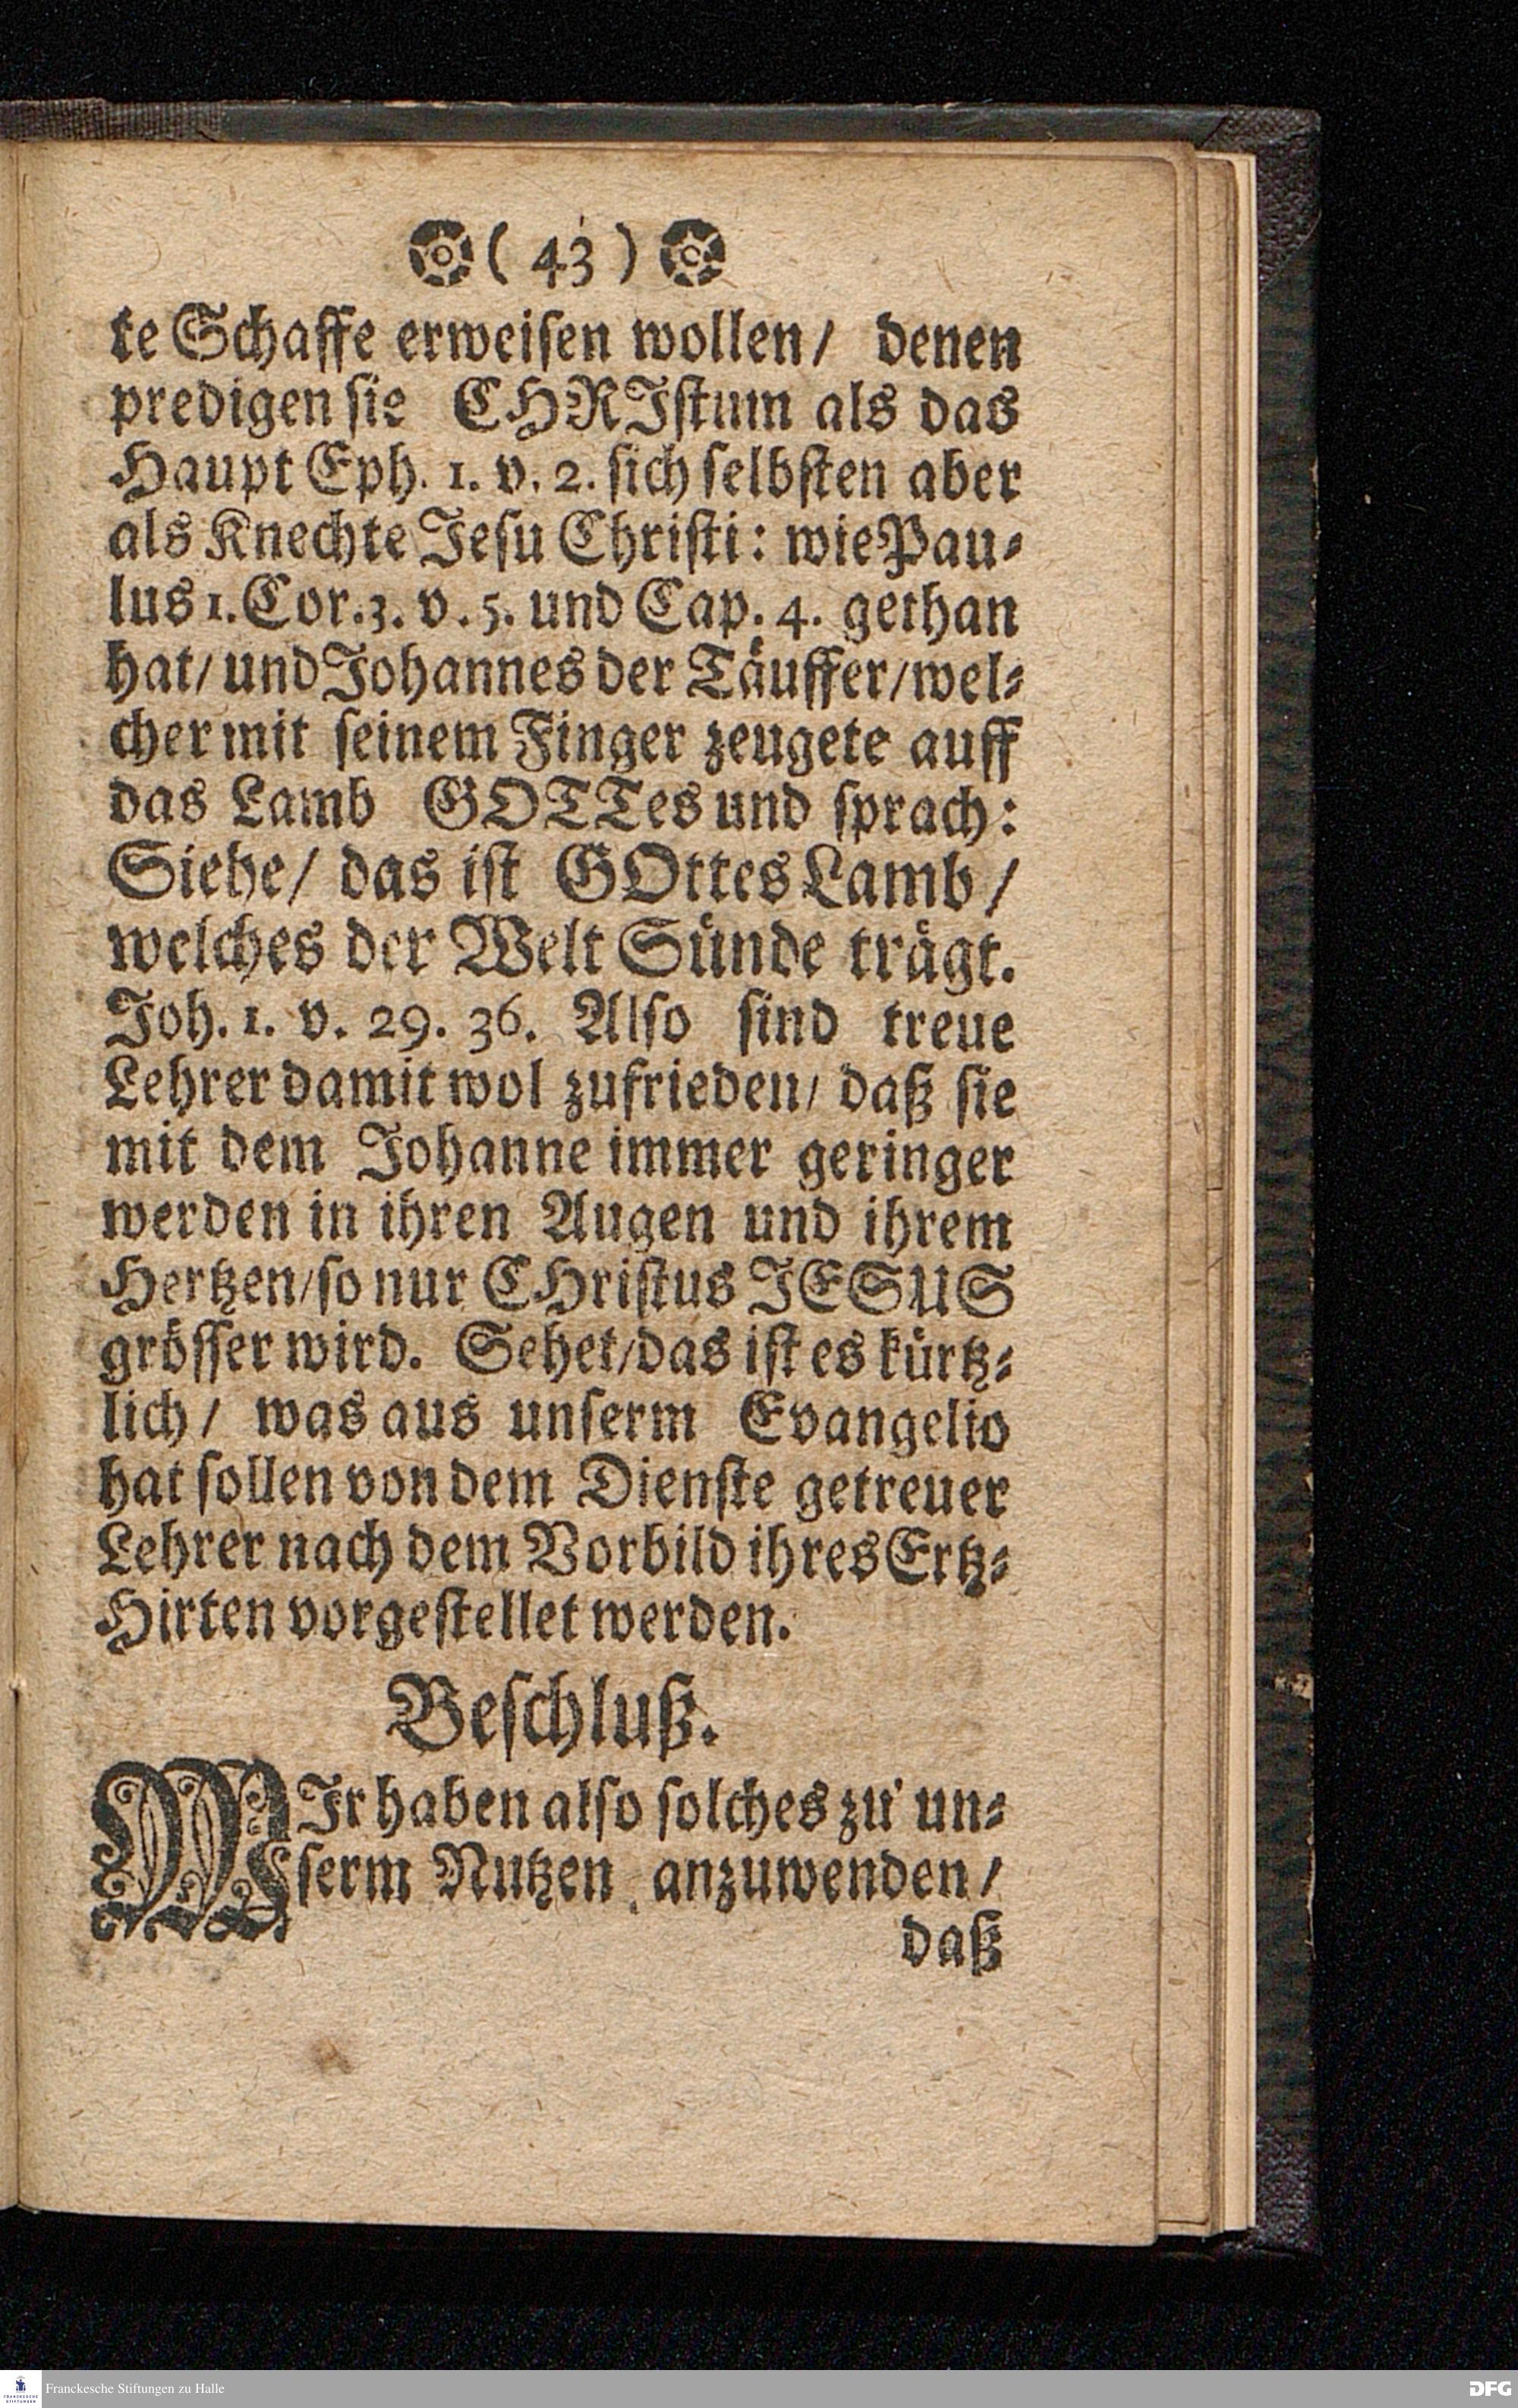 ( 43 )
te Schaffe erweisen wollen/ denen
predigen sie CHRIstum als das
Haupt Eph. 1. v. 2. sich selbsten aber
als Knechte Jesu Christi: wie Pau-
lus 1. Cor. 3. v. 5. und Cap. 4. gethan
hat/ und Johannes der Täuffer/ wel-
cher mit seinem Finger zeugete auff
das Lamb GOTTes und sprach:
Siehe/ das ist GOttes Lamb/
welches der Welt Sünde trägt.
Joh. 1. v. 29. 36. Also sind treue
Lehrer damit wol zufrieden/ daß sie
mit dem Johanne immer geringer
werden in ihren Augen und ihrem
Hertzen/ so nur CHristus JESUS
grösser wird. Sehet/ das ist es kürtz-
lich/ was aus unserm Evangelio
hat sollen von dem Dienste getreuer
Lehrer nach dem Vorbild ihres Ertz-
Hirten vorgestellet werden.
Beschluß.
WIr haben also solches zu un-
serm Nutzen anzuwenden/
daß
Franckesche Stiftungen zu Halle
DFG